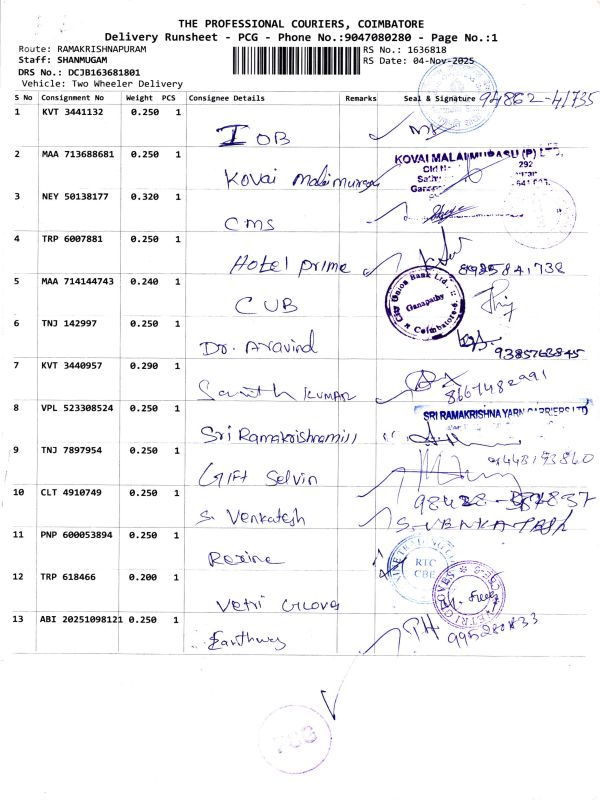 THE PROFESSIONAL COURIERS, COIMBATORE
Delivery Runsheet - PCG - Phone No.:9047080280 - Page No.:1
Route: RAMAKRISHNAPURAM RS No.: 1636818
Staff: SHANMUGAM RS Date: 04-Nov-2025
DRS No.: DCJB163681801
Vehicle: Two Wheeler Delivery
S No Consignment No Weight PCS Consignee Details Remarks Seal & Signature 94862-41735
1 KVT 3441132 0.250 1 IOB
2 MAA 713688681 0.250 1 Kovai Malaimurasu KOVAI MALAIMURASU (P) LTD,
292
3 NEY 50138177 0.320 1 CMS
4 TRP 6007881 0.250 1 Hotel prime 8925841738
5 MAA 714144743 0.240 1 CUB City Union Bank Ltd., Ganapathy Coimbatore-6.
6 TNJ 142997 0.250 1 Dr. Aravind 9385763845
7 KVT 3440957 0.290 1 KUMAR 8667482991
8 VPL 523308524 0.250 1 Sri Ramakrishna mill SRI RAMAKRISHNA YARN CARRIERS LTD
9 TNJ 7897954 0.250 1 Gift Selvin 9448193860
10 CLT 4910749 0.250 1 S. Venkatesh S. VENKATESH
11 PNP 600053894 0.250 1 RTC CBE
12 TRP 618466 0.200 1 Vetri Gloves VETRI GLOVES
13 ABI 20251098121 0.250 1
PCG